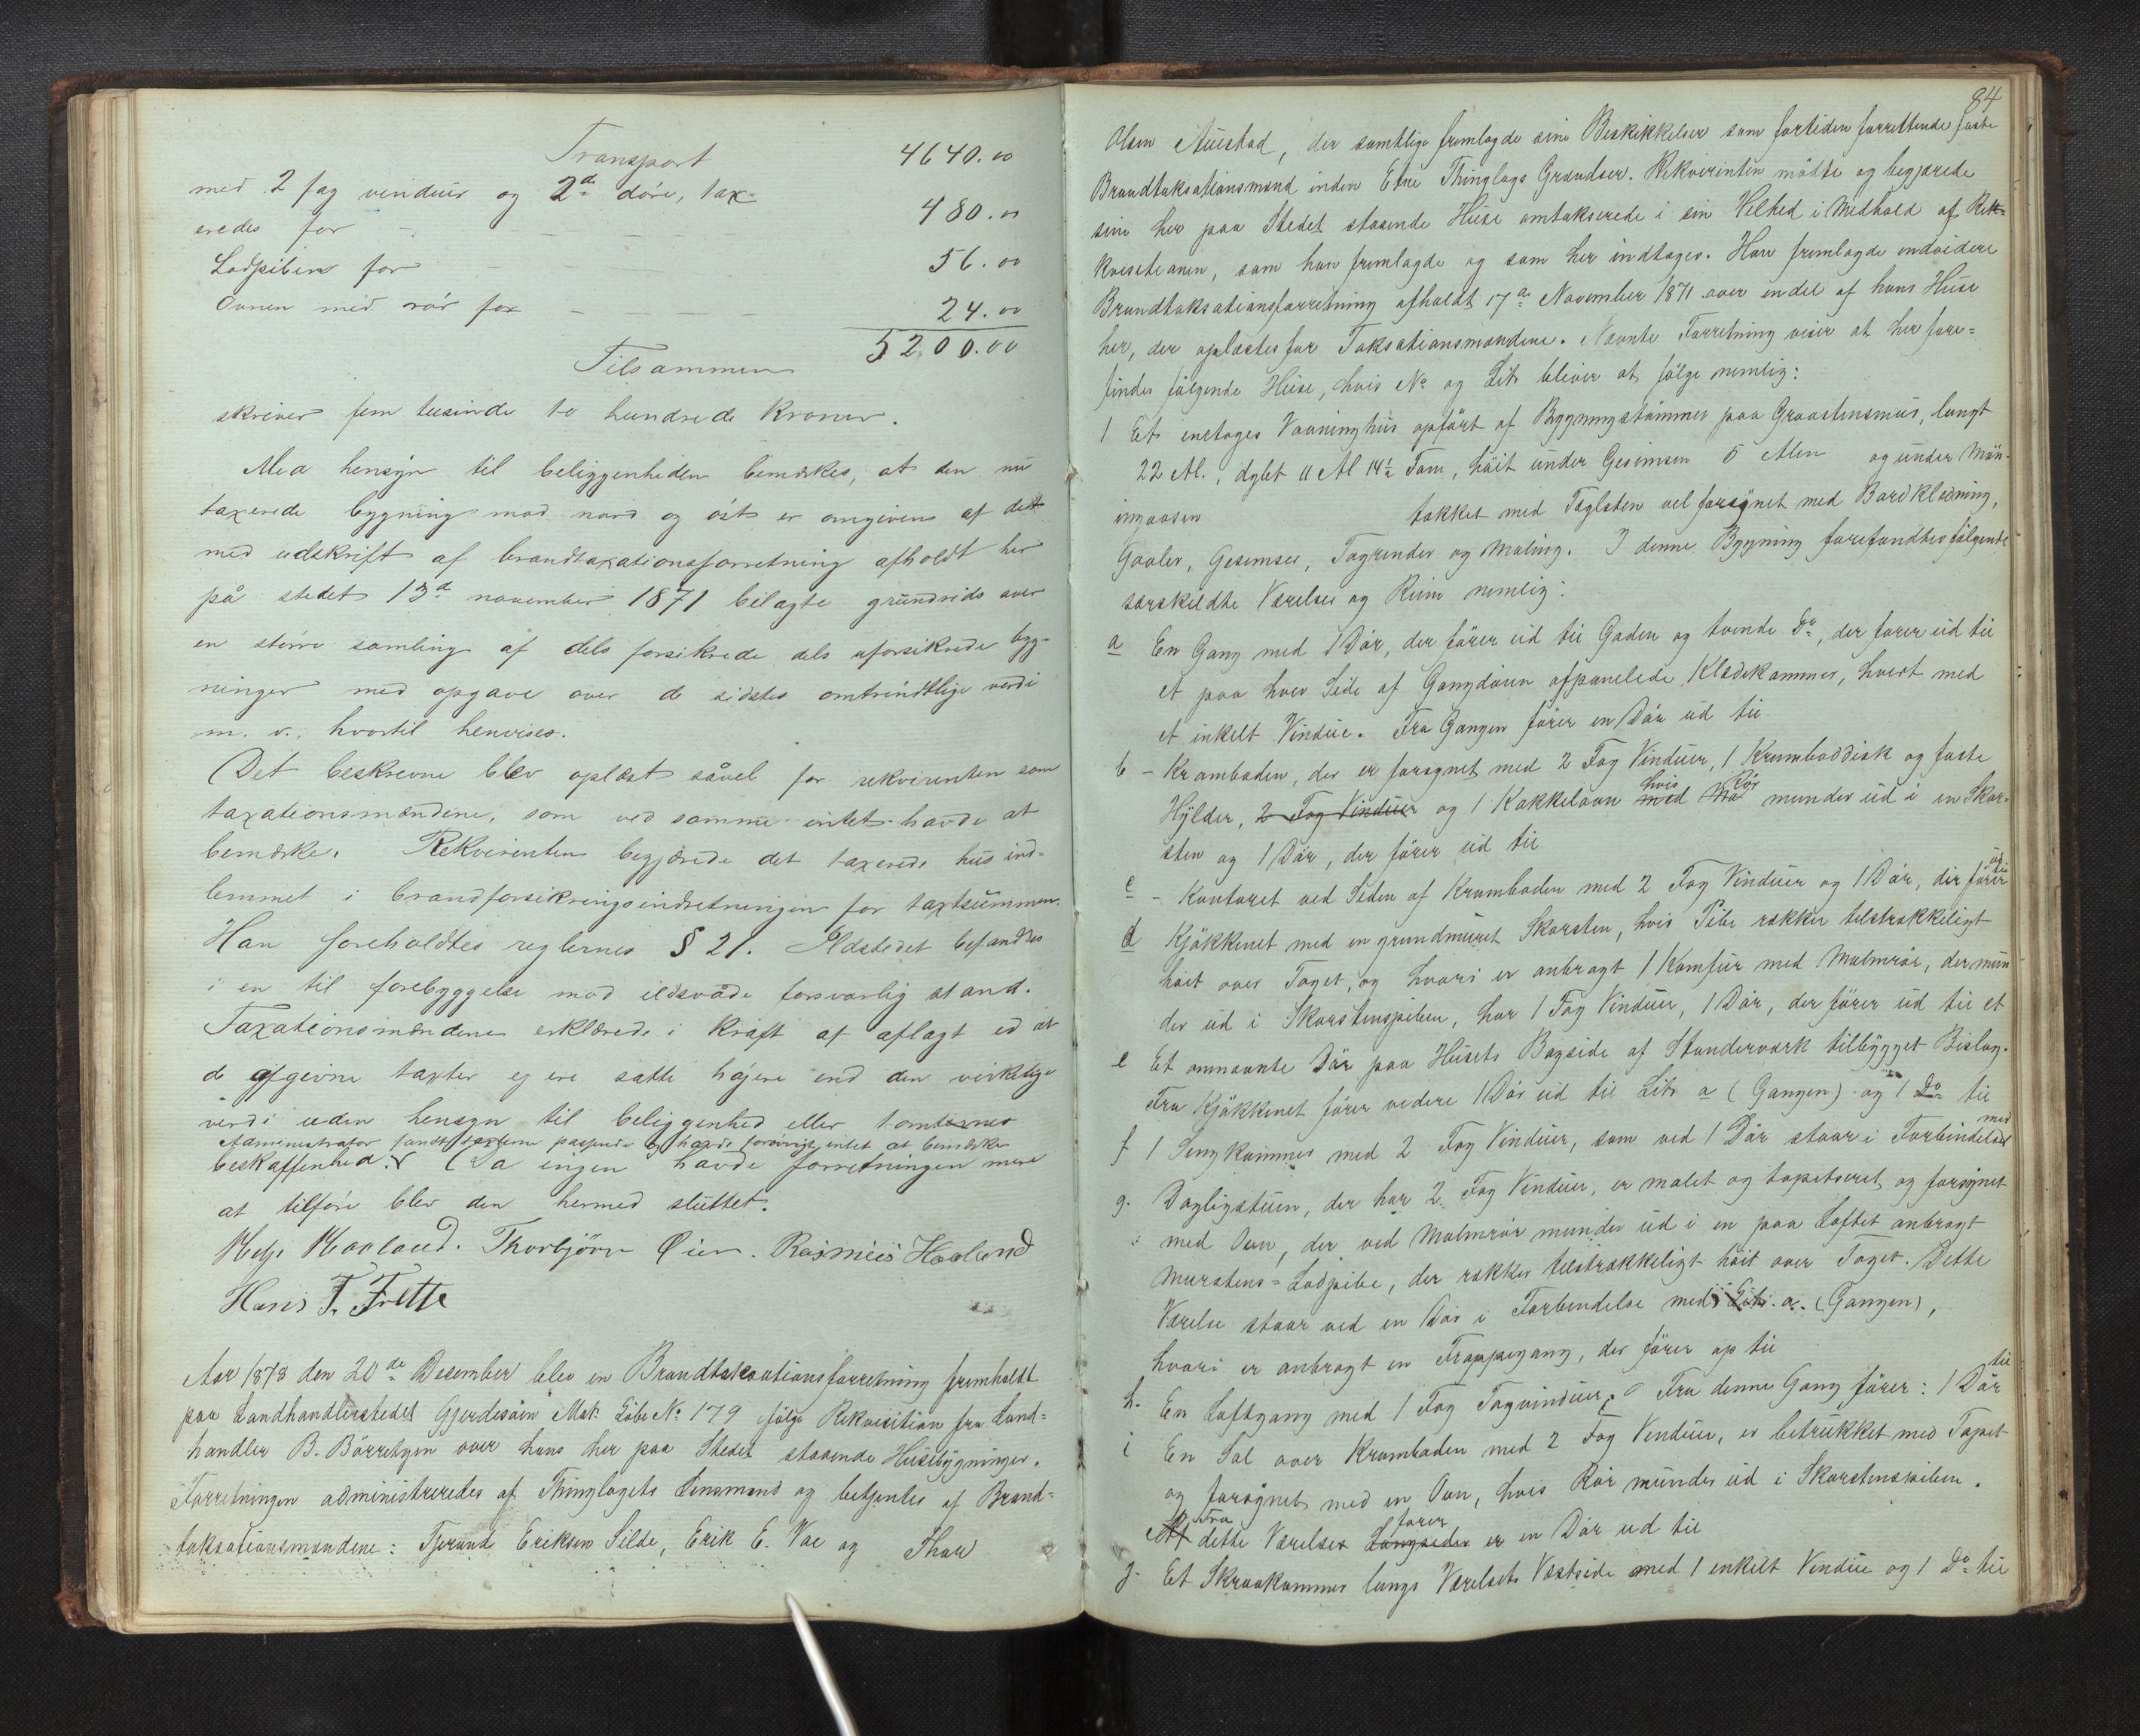 Transport 4640.00
med 2 fag vinduer og 2de döre, tax-
eredes for - - - - 480.00
Lodpiben for - - - 56.00
Ovnen med rör for - - - - 24.00
Tilsammen 5200.00
skriver fem tusinde to hundrede Kroner.
Med hensyn til beliggenheden bemærkes, at den nu
taxerede bygning mod nord og öst er omgiven af det
med udskrift af brandtaxationsforretning afholdt her
på stedet 13de november 1871 bilagte grundrids over
en större samling af dels forsikrede dels uforsikrede byg-
ninger med opgave over de sidstes omtrindtlige verdi
m. v., hvortil henvises.
Det beskrevne blev oplæst såvel for rekvirenten som
taxationsmændene, som ved samme intet havde at
bemærke. Rekvirenten begjærede det taxerede hus ind-
lemmet i brandforsikringsindretningen for taxtsummen.
Han foreholdtes reglernes § 21. Ildstedet befandtes
i en til forebyggelse mod ildsvåde forsvarlig stand.
Taxationsmændene erklærede i kraft af aflagt ed at
de afgivne taxter ej ere satte höjere end den virkelige
verdi uden hensyn til beliggenhed eller tomternes
Administrator fandt taxterne passende og havde forövrigt intet at bemærke
beskaffenhed. Da ingen havde forretningen mere
at tilföre blev den hermed sluttet.
Helje Haaland. Thorbjörn Øien. Rasmus Haaland
Hans T. Frette
Aar 1878 den 20de Desember blev en Brandtaksationsforretning fremholdt
paa Landhandlerstedet Gjerdesöin Mat. Löbe No 179 ifölge Rekvisition fra Land=
handler B. Börretzen over hans her paa Stedet staaende Husebygninger.
Forretningen administreredes af Thinglagets Lensmand og betjentes af Brand=
taksationsmændene: Tjerand Eriksen Silde, Erik E. Vae og Thore
84
Olsen Austad, der samtlige fremlagde sine Beskikkelser som fortiden forrettende faste
Brandtaksationsmænd inden Etne Thinglags Grændser. Rekvirenten mödte og begjærede
sine her paa Stedet staaende Huse omtakserede i sin Helhed i Medhold af Rek-
kvisitionen, som han fremlagde og som her indtages. Han fremlagde endvidere
Brandtaksationsforretning afholdt 17de November 1871 over endel af hans Huse
her, der oplæstes for Taksationsmændene. Nævnte Forretning viser at her fore=
findes fölgende Huse, hvis No og Litr bliver at fölge nemlig:
1 Et enetages Vaaninghus opfört af Bygningstömmer paa Graastensmur, langt
22 Al., dybt 11 Al 14½ Tom, höit under Gesimsen 5 Alen og under Mön-
ingaasen takket med Taglsten vel forsynet med Bordklædning,
Gavler, Gesimser, Tagrender og Maling. I denne Bygning forefandtes fölgende
særskildte Værelser og Rum nemlig:
a En Gang med 1 Dör, der förer ud til Gaden og tvende Do, der förer ud til
et paa hver Side af Gangdören afpanelede Klædekammer, hvert med
et enkelt Vindue. Fra Gangen förer en Dör ud til
b - Kramboden, der er forsynet med 2 Fag Vinduer, 1 Kramboddisk og faste
Hylder, 2 Fag Vinduer og 1 Kakkelovn med hvis Rör munder ud i en Skor-
sten og 1 Dör, der förer ud til
c - Kontoret ved Siden af Kramboden med 2 Fag Vinduer og 1 Dör, der förer ud til
d Kjökkenet med en grundmuret Skorsten, hvis Pibe rækker tilstrækkeligt
höit over Taget, og hvori er anbragt 1 Komfur med Malmrör, der mun
der ud i Skorstenspiben, har 1 Fag Vinduer, 1 Dör, der förer ud til et
e Et omnævnte Dör paa Husets Bagside af Standerværk tilbygget Bislag.
Fra Kjökkenet förer videre 1 Dör ud til Litr a (Gangen) og 1 Do til
f 1 Sengkammer med 2 Fag Vinduer, som ved 1 Dör staar i Forbindelse med
g. Dagligstuen, der har 2 Fag Vinduer, er malet og tapetseret og forsynet
med Ovn, der ved Malmrör munder ud i en paa Loftet anbragt
Murstens=Lodpibe, der rækker tilstrækkeligt höit over Taget. Dette
Værelse staar ved en Dör i Forbindelse med Litr. a. (Gangen),
hvori er anbragt en Trappegang, der förer op til
h. En Loftgang med 1 Fag Tagvinduer. Fra denne Gang förer: 1 Dör til
i En Sal over Kramboden med 2 Fag Vinduer, er betrukket med Tapet
og forsynet med en Ovn, hvis Rör munder ud i Skorstenspiben.
Af Fra dette Værelses Langsider förer er en Dör ud til
j. Et Skraakammer langs Værelsets Vestside med 1 enkelt Vindue og 1 Do til